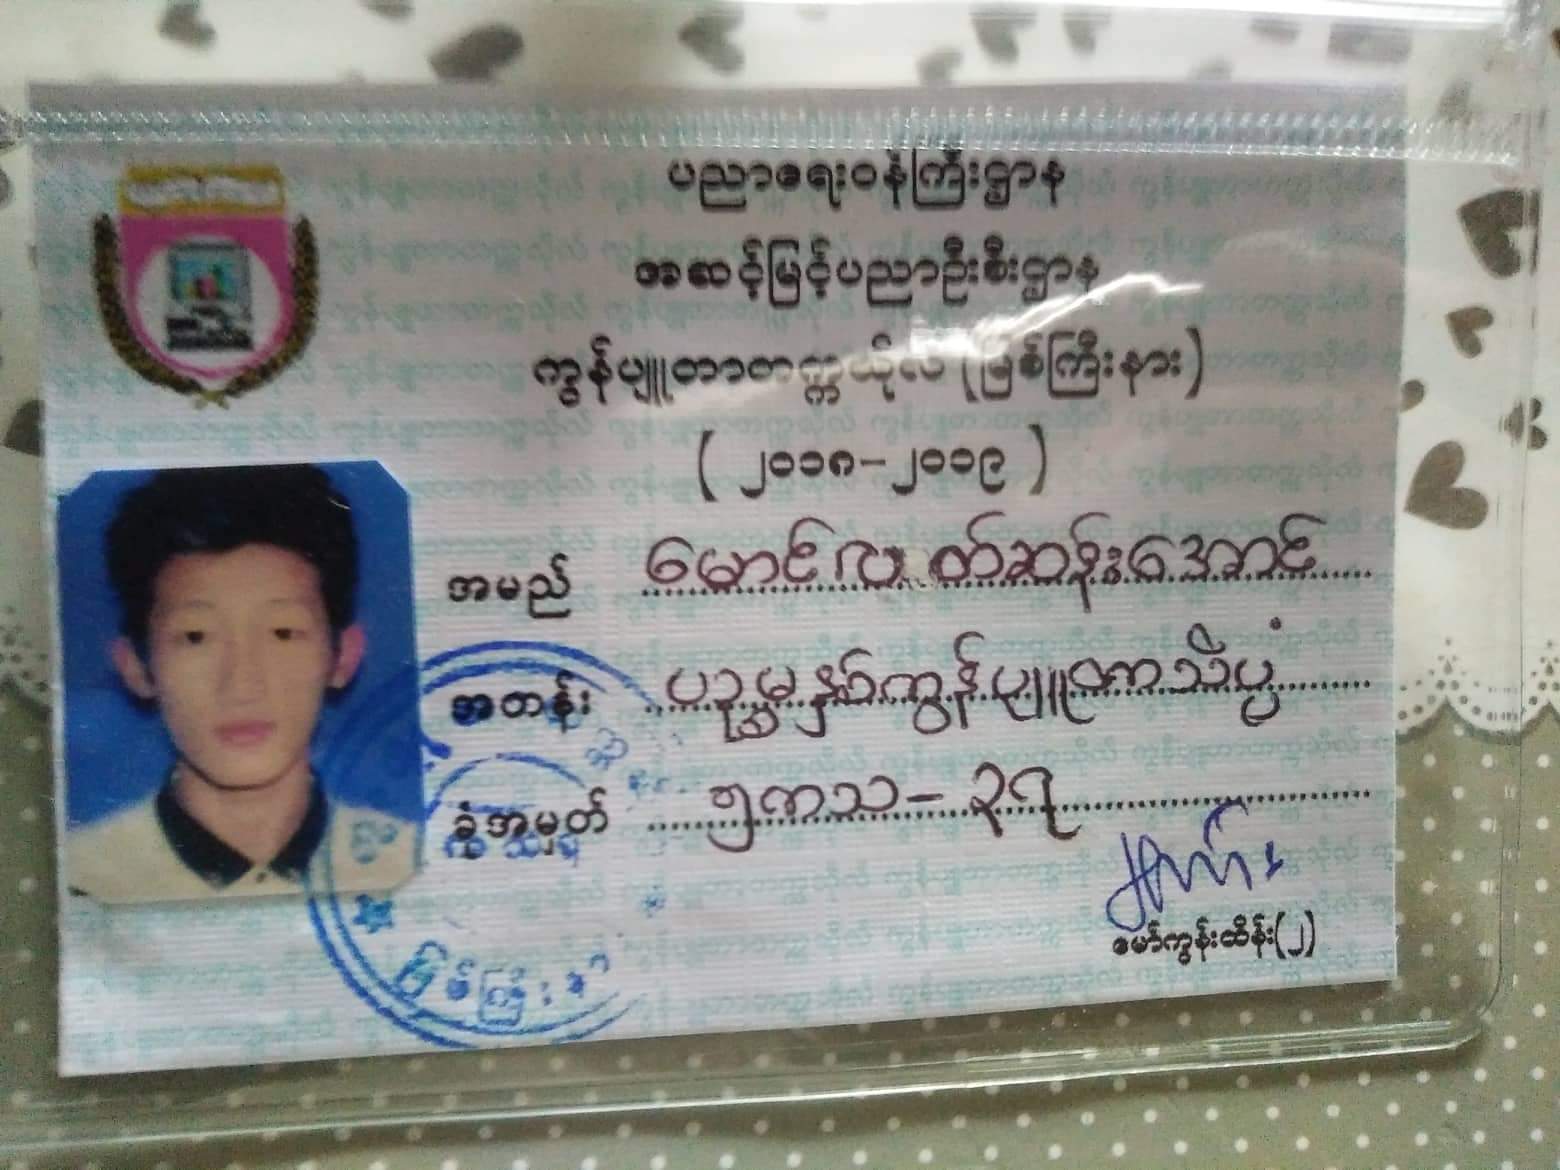 ပညာရေးဝန်ကြီးဌာန
အဆင့်မြင့်ပညာဦးစီးဌာန
ကွန်ပျူတာတက္ကသိုလ် (မြစ်ကြီးနား)
( ၂၀၁၈-၂၀၁၉ )
အမည် မောင်လတ်ဆန်းအောင်
အတန်း ပဉ္စမနှစ်ကွန်ပျူတာသိပ္ပံ
ခုံအမှတ် ၅ကသ-၃၇
မော်ကွန်းထိန်း(၂)
မြစ်ကြီးနား